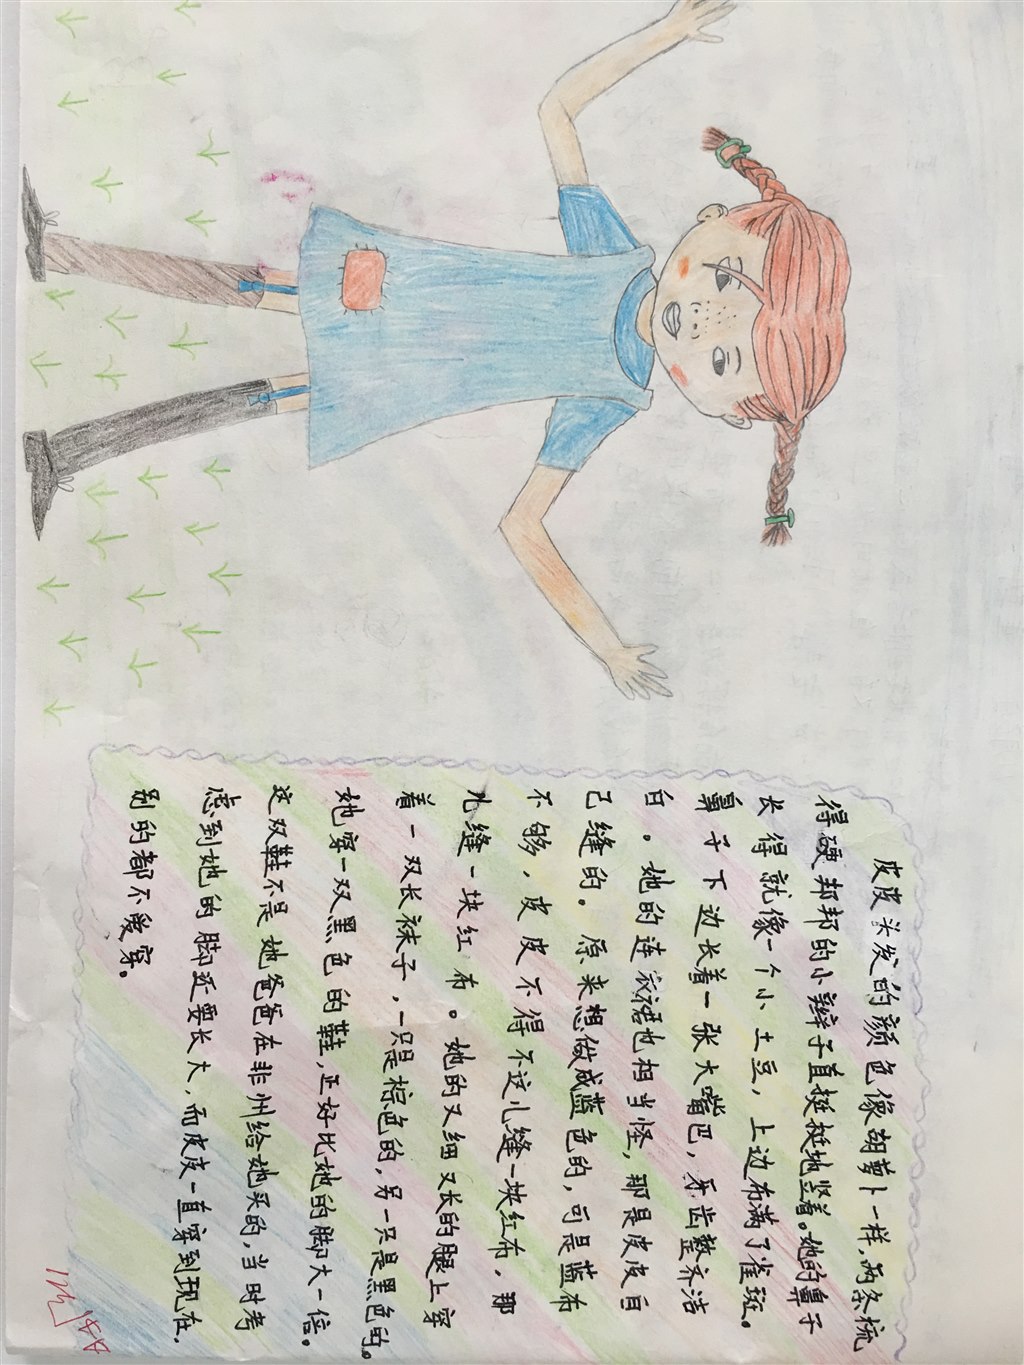 皮皮头发的颜色像胡萝卜一样,两条梳
得硬邦邦的小辫子直挺挺地竖着。她的鼻子
长得就像一个小土豆,上边布满了雀斑。
鼻子下边长着一张大嘴巴,牙齿整齐洁
白。她的连衣裙也相当怪,那是皮皮自
己缝的。原来想做成蓝色的,可是蓝布
不够,皮皮不得不这儿缝一块红布,那
儿缝一块红布。她的又细又长的腿上穿
着一双长袜子,一只是棕色的,另一只是黑色的。
她穿一双黑色的鞋,正好比她的脚大一倍。
这双鞋不是她爸爸在非州给她买的,当时考
虑到她的脚还要长大,而皮皮一直穿到现在,
别的都不爱穿。